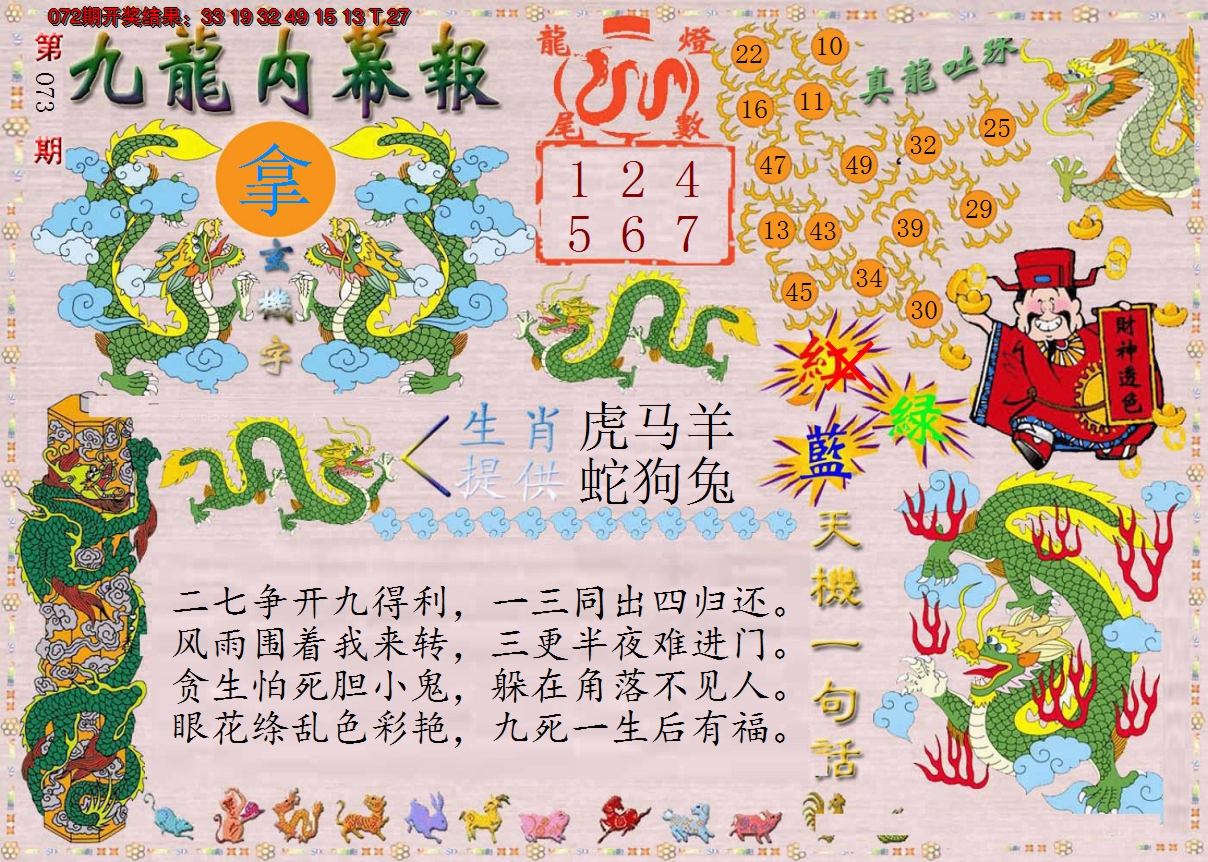 072期开奖结果：33 19 32 49 15 13 T 27
第073期
九龍内幕報
拿
玄機字
龍燈尾數
1 2 4
5 6 7
真龍吐珠
22 10
16 11
47 49 32 25
13 43 39 29
45 34 30
財神透色
紅
綠
藍
生肖 虎马羊
提供 蛇狗兔
天機一句话
二七争开九得利，一三同出四归还。
风雨围着我来转，三更半夜难进门。
贪生怕死胆小鬼，躲在角落不见人。
眼花绦乱色彩艳，九死一生后有福。